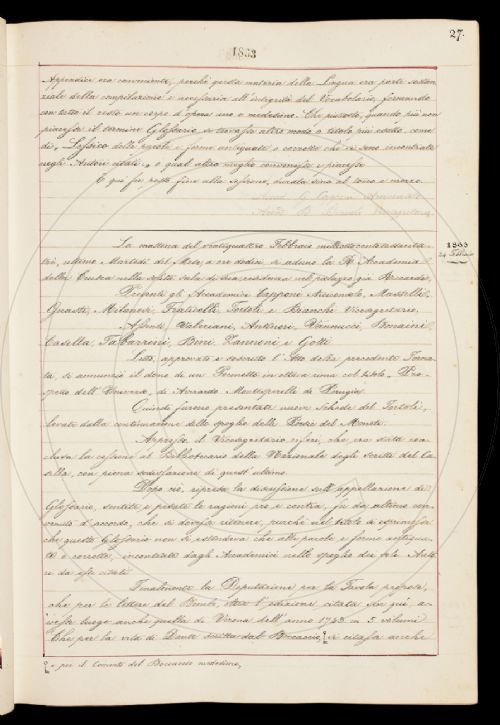 27.
1863
Appendice era conveniente, perchè questa materia della Lingua era parte sostan-
ziale della compilazione e necessaria all'integrità del Vocabolario, formando
con tutto il resto un corpo d'opera uno e medesimo. Che piuttosto, quando più non
piacesse il termine Glossario si trovasse altro modo o titolo più esatto, come
di, Lessico delle parole e forme antiquate o corrotte che si sono incontrate
negli Autori citati, o qual altro meglio convenisse e piacesse.
E qui fu posto fine alla sessione, durata sino al tocco e mezzo.
Accad. G. Capponi Arciconsolo
Accad. B. Bianchi Vicesegretario
1863
24 Febbraio
La mattina del ventiquattro Febbraio milleottocentosessanta-
tre, ultimo Martedì del Mese, a ore dodici si adunò la R. Accademia
della Crusca nella solita sala di sua residenza nel palazzo già Riccardi.
Presenti gli Accademici Capponi Arciconsolo, Masselli,
Guasti, Milanesi, Fraticelli, Tortoli e Bianchi Vicesegretario,
Assenti Valeriani, Antinori, Vannucci, Bonaini
Casella, Tabarrini, Bini, Zannoni e Gotti
Letto, approvato e sottoscritto l'Atto della precedente Torna-
ta, si annunziò il dono di un Poemetto in ottava rima col titolo, Pro-
spetto dell'Universo, di Averardo Montesperelli di Perugia.
Quindi furono presentate nuove Schede del Tortoli,
levate dalla continuazione dello spoglio delle Poesie del Monti.
Appresso il Vicesegretario riferì, che era stata con-
clusa la cessione al Bibliotecario della Nazionale degli scritti del Ca-
sella, con piena sodisfazione di quest'ultimo.
Dopo ciò, ripresa la discussione sull'appellazione di
Glossario, sentite e pesate le ragioni pro e contra, fu da ultimo con-
venuto d'accordo, che si dovesse ritenere, purchè nel titolo si esprimesse
che questo Glossario non si estendeva che alle parole e forme antiqua-
te e corrotte, incontrate dagli Accademici nello spoglio dei soli Auto-
ri da essi citati.
Finalmente la Deputazione per la Tavola propose,
che per le lettere del Bembo, oltre l'edizione citata fin quì, a-
vesse luogo anche quella di Verona dell'anno 1743 in 5 volumi
Che per la vita di Dante scritta dal Boccaccio, si citasse anche
e per il Comento del Boccaccio medesimo,